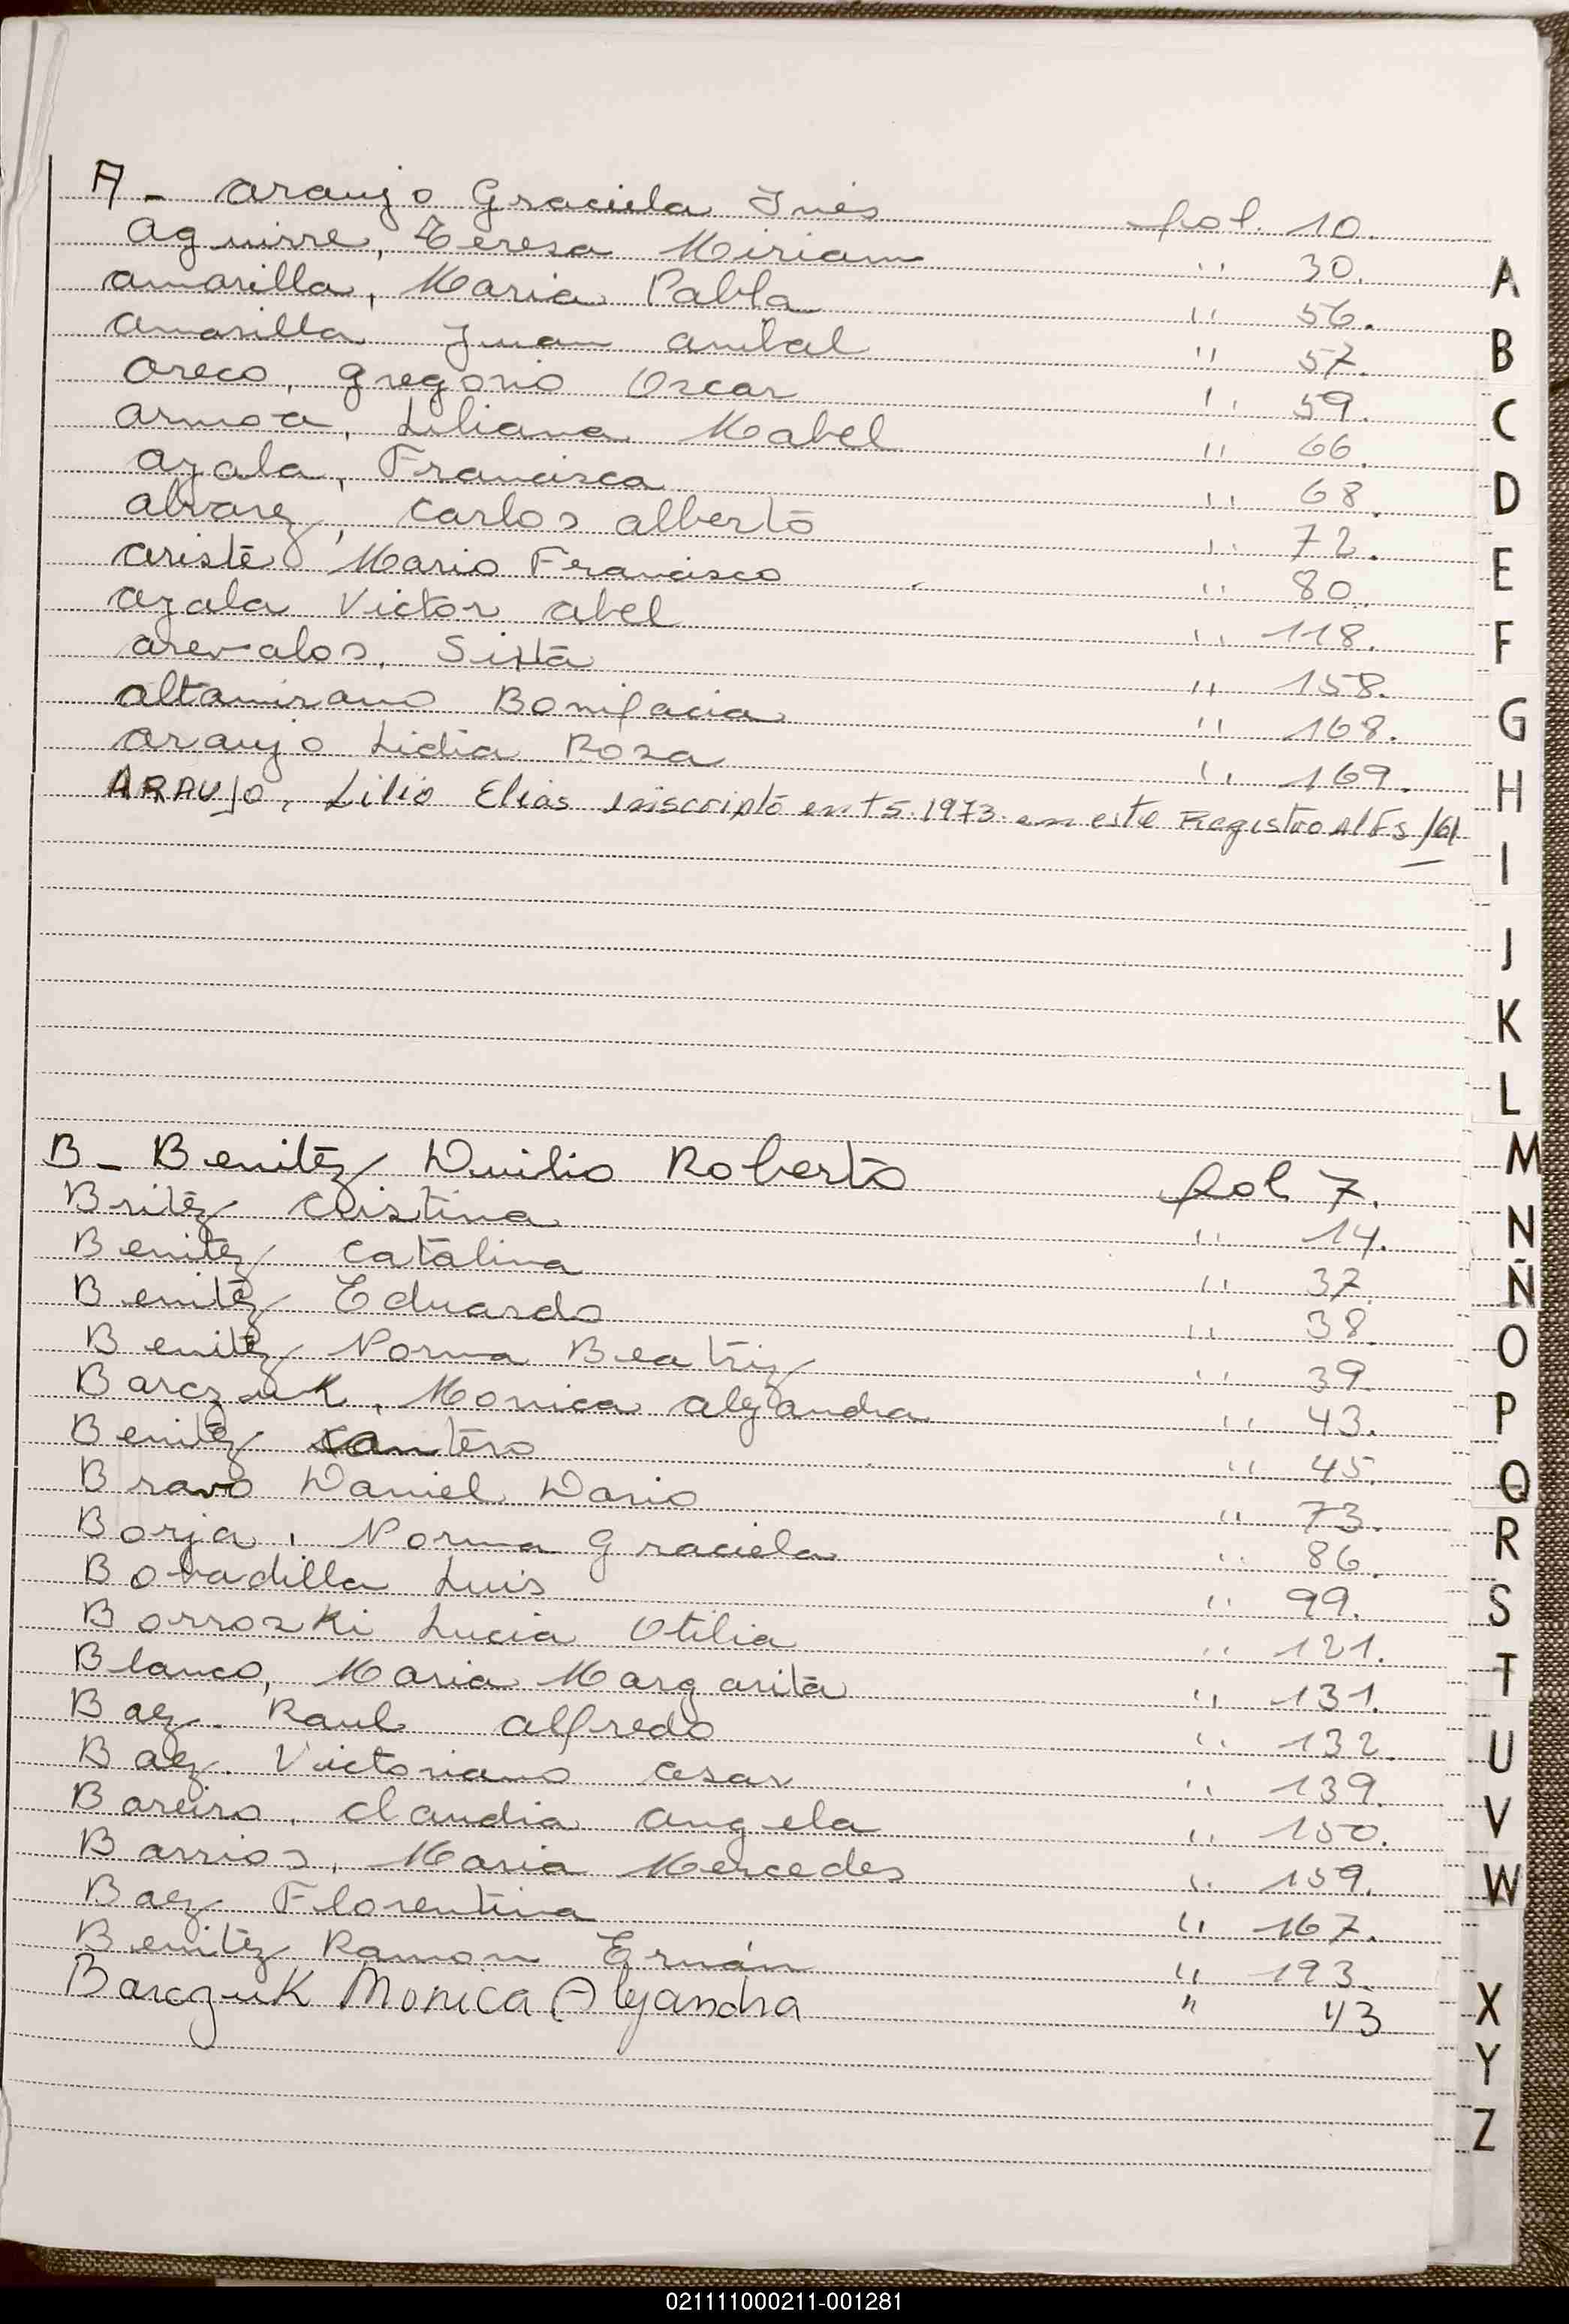 A - Araujo Graciela Inés fol. 10.
Aguirre, Teresa Miriam " 30.
Amarilla, Maria Pabla " 56.
Amarilla Juan Anibal " 57.
Areco, Gregorio Oscar " 59.
Armoa, Liliana Mabel " 66.
Ayala, Francisca " 68.
Alvarez, Carlos Alberto " 72.
Ariste Mario Francisco " 80.
Ayala Victor Abel " 118.
Arevalos, Sixta " 158.
Altamirano Bonifacia " 168.
Araujo Lidia Rosa " 169.
ARAUJO, Lilio Elias Inscripto en t 5. 1973 en este Registro Al Fs 161
B - Benitez Duilio Roberto fol 7.
Britez Cristina " 14.
Benitez Catalina " 37.
Benitez Eduardo " 38.
Benitez Norma Beatriz " 39.
Barczuk, Monica Alejandra " 43.
Benitez Santero " 45.
Bravo Daniel Dario " 73.
Borja, Norma Graciela " 86.
Bovadilla Luis " 99.
Borroski Lucia Otilia " 121.
Blanco, Maria Margarita " 131.
Baez. Raul Alfredo " 132.
Baez. Victoriano Cesar " 139.
Bareiro, Claudia Angela " 150.
Barrios, Maria Mercedes " 159.
Baez Florentina " 167.
Benitez Ramon Ernán " 193.
Barczuk Monica Alejandra " 43
A
B
C
D
E
F
G
H
I
J
K
L
M
N
Ñ
O
P
Q
R
S
T
U
V
W
X
Y
Z
021111000211-001281